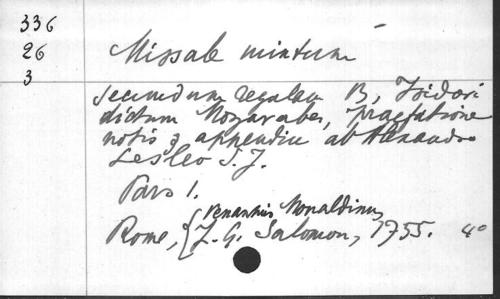 336
26
3
Missale mixtum
secundum regulam B. Isidori
dictum Mozarabes, praefatione
notis & appendice ab Alexandro
Lesleo S.J.
Pars 1.
Venantius Monaldinus
Rome, { J. G. Salomon, 1755. 4°